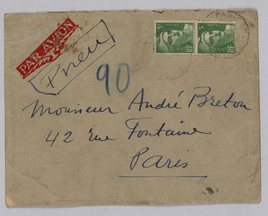 PAR AVION
Pneu
90
Monsieur André Breton
42 rue Fontaine
Paris